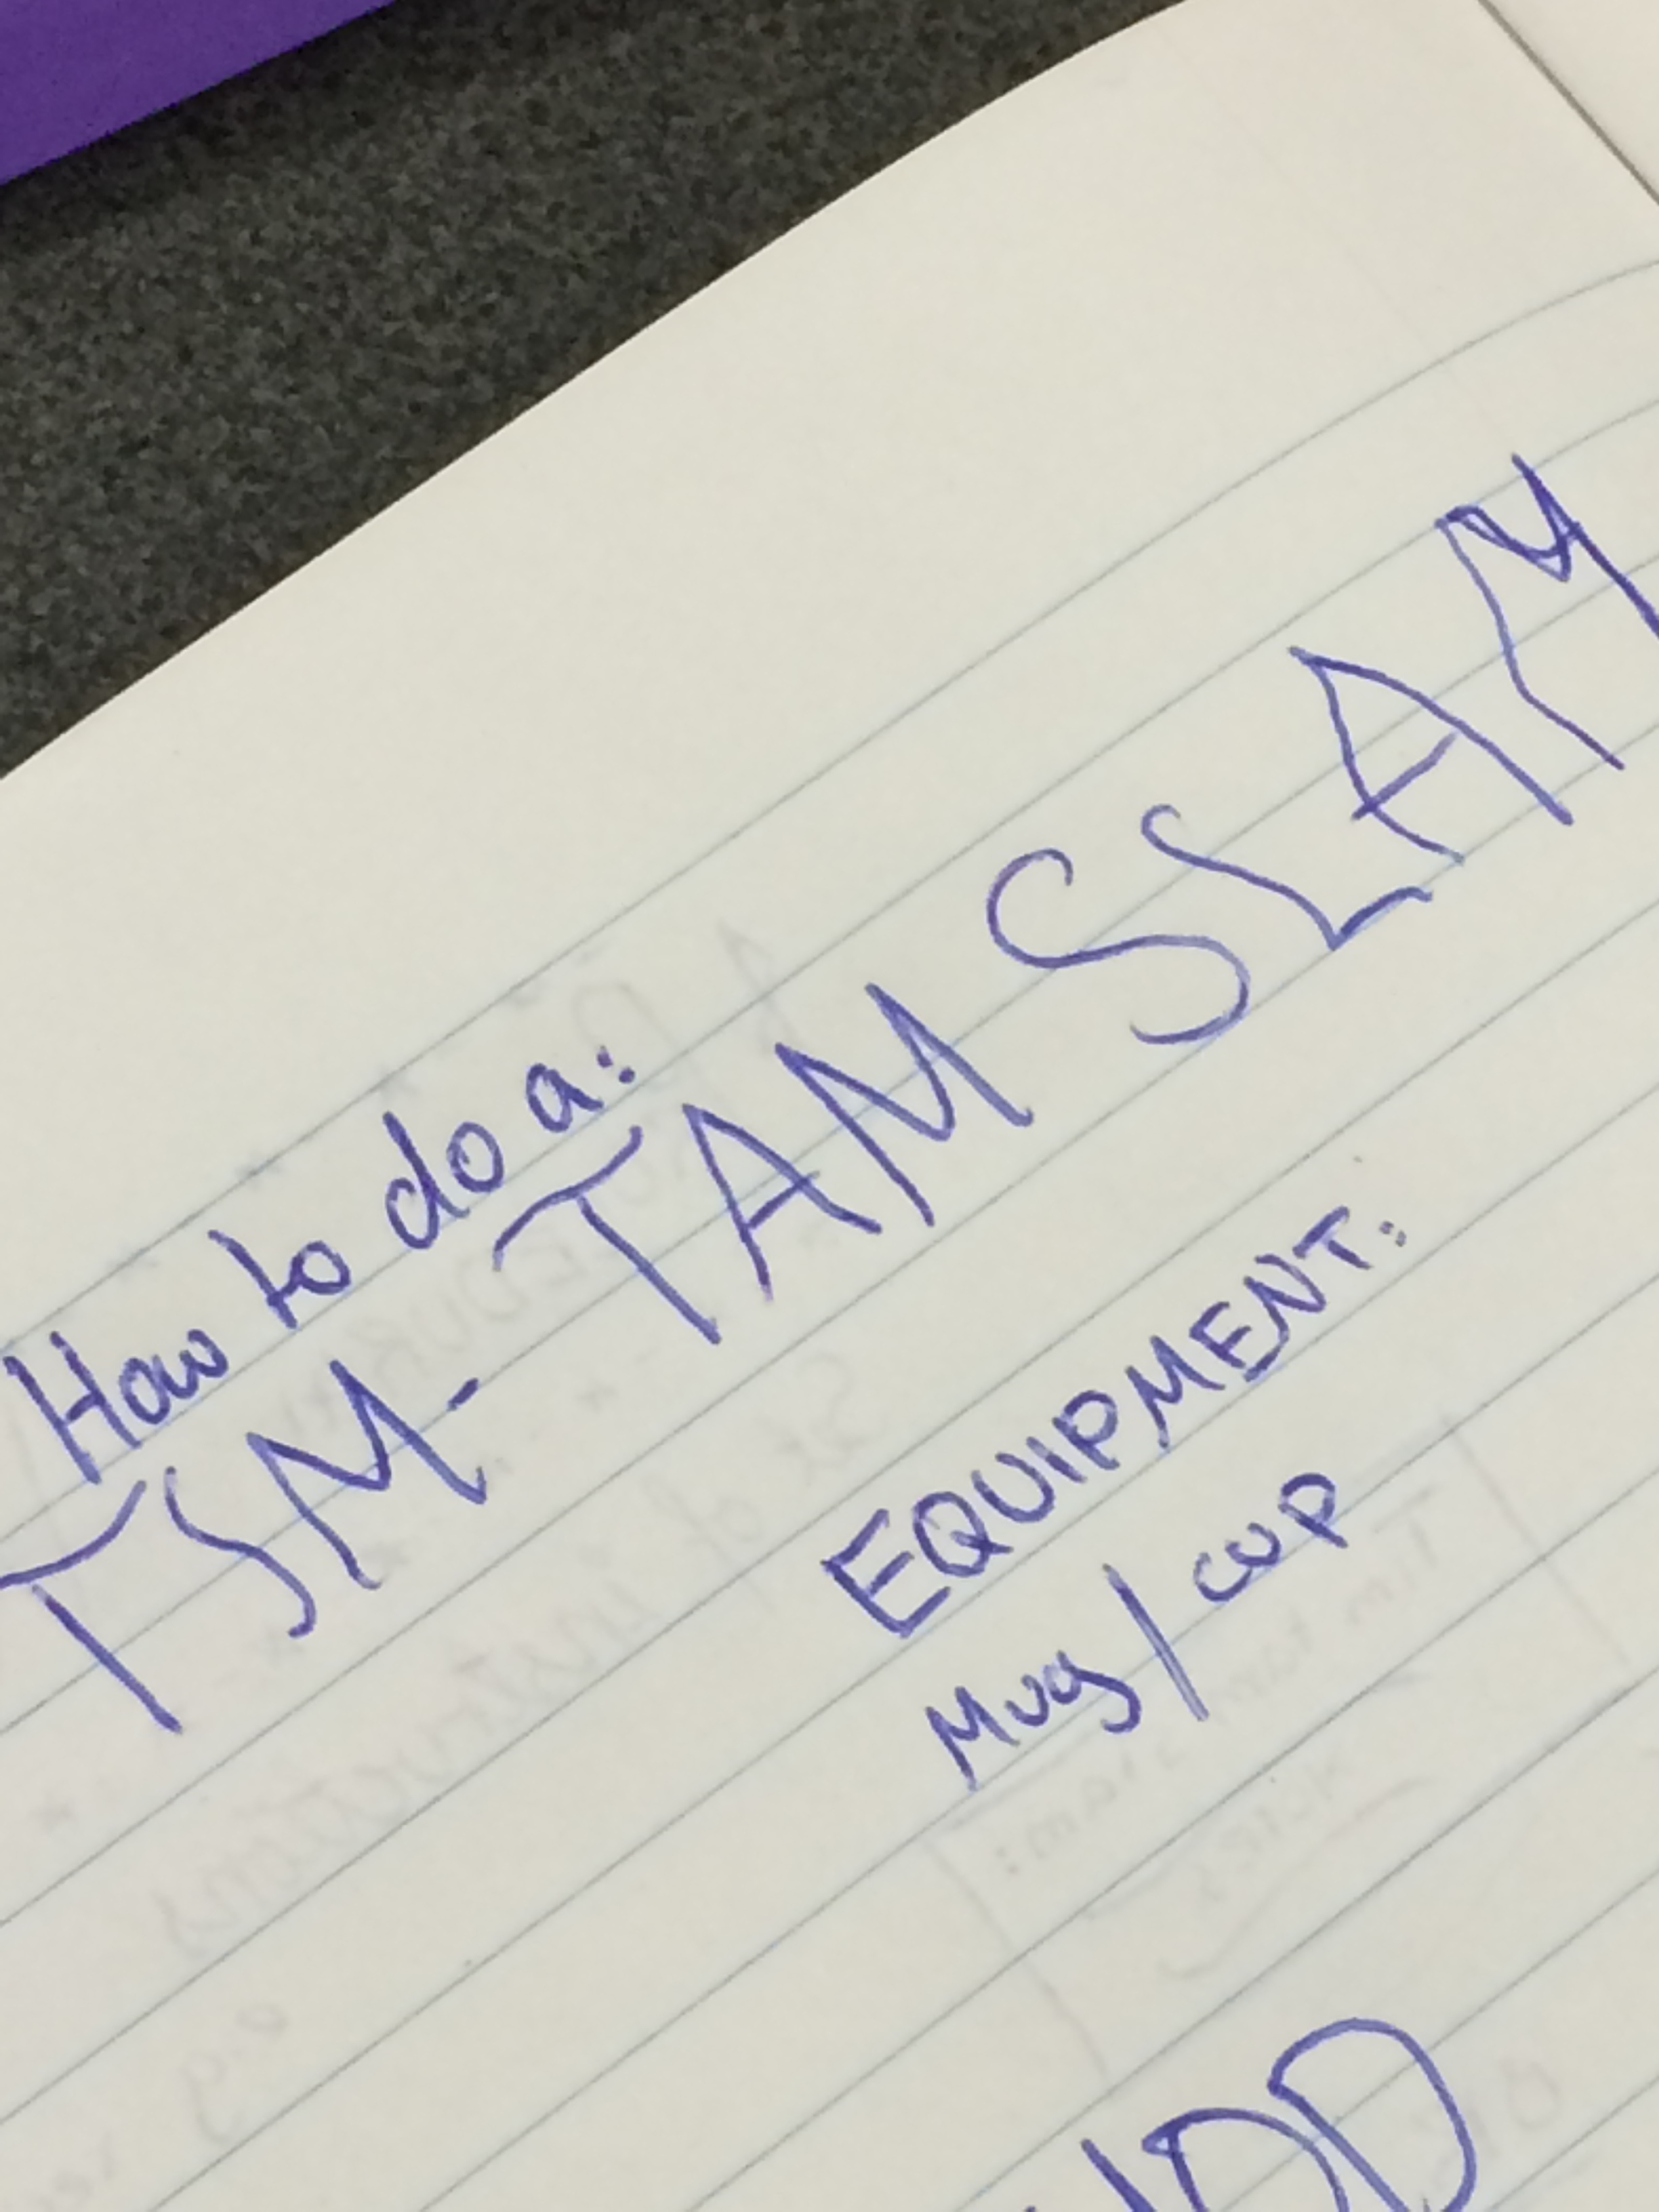 How to do a:
TSM - TAM SLAM
EQUIPMENT:
Mug / cup